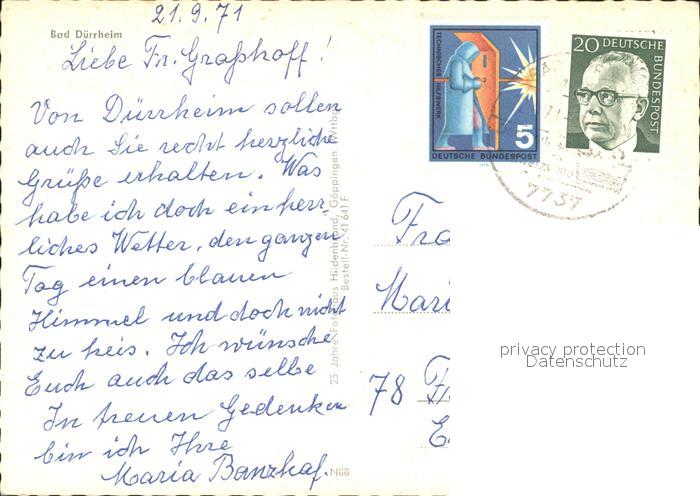 21.9.71
Bad Dürrheim
Liebe Fr. Graßhoff!
Von Dürrheim sollen
auch Sie recht herzliche
Grüße erhalten. Was
habe ich doch ein herr-
liches Wetter, den ganzen
Tag einen blauen
Himmel und doch nicht
zu heis. Ich wünsche
Euch auch das selbe
In treuen Gedenken
bin ich Ihre
Maria Banzhaf.
Nüß
25 Jahre Foto Haus Hildenbrand, Göppingen Württbg.
Bestell-Nr. 41 641 F
TECHNISCHES HILFSWERK
5
DEUTSCHE BUNDESPOST
20 DEUTSCHE
BUNDESPOST
7737
Fra
Mari
78
privacy protection
Datenschutz